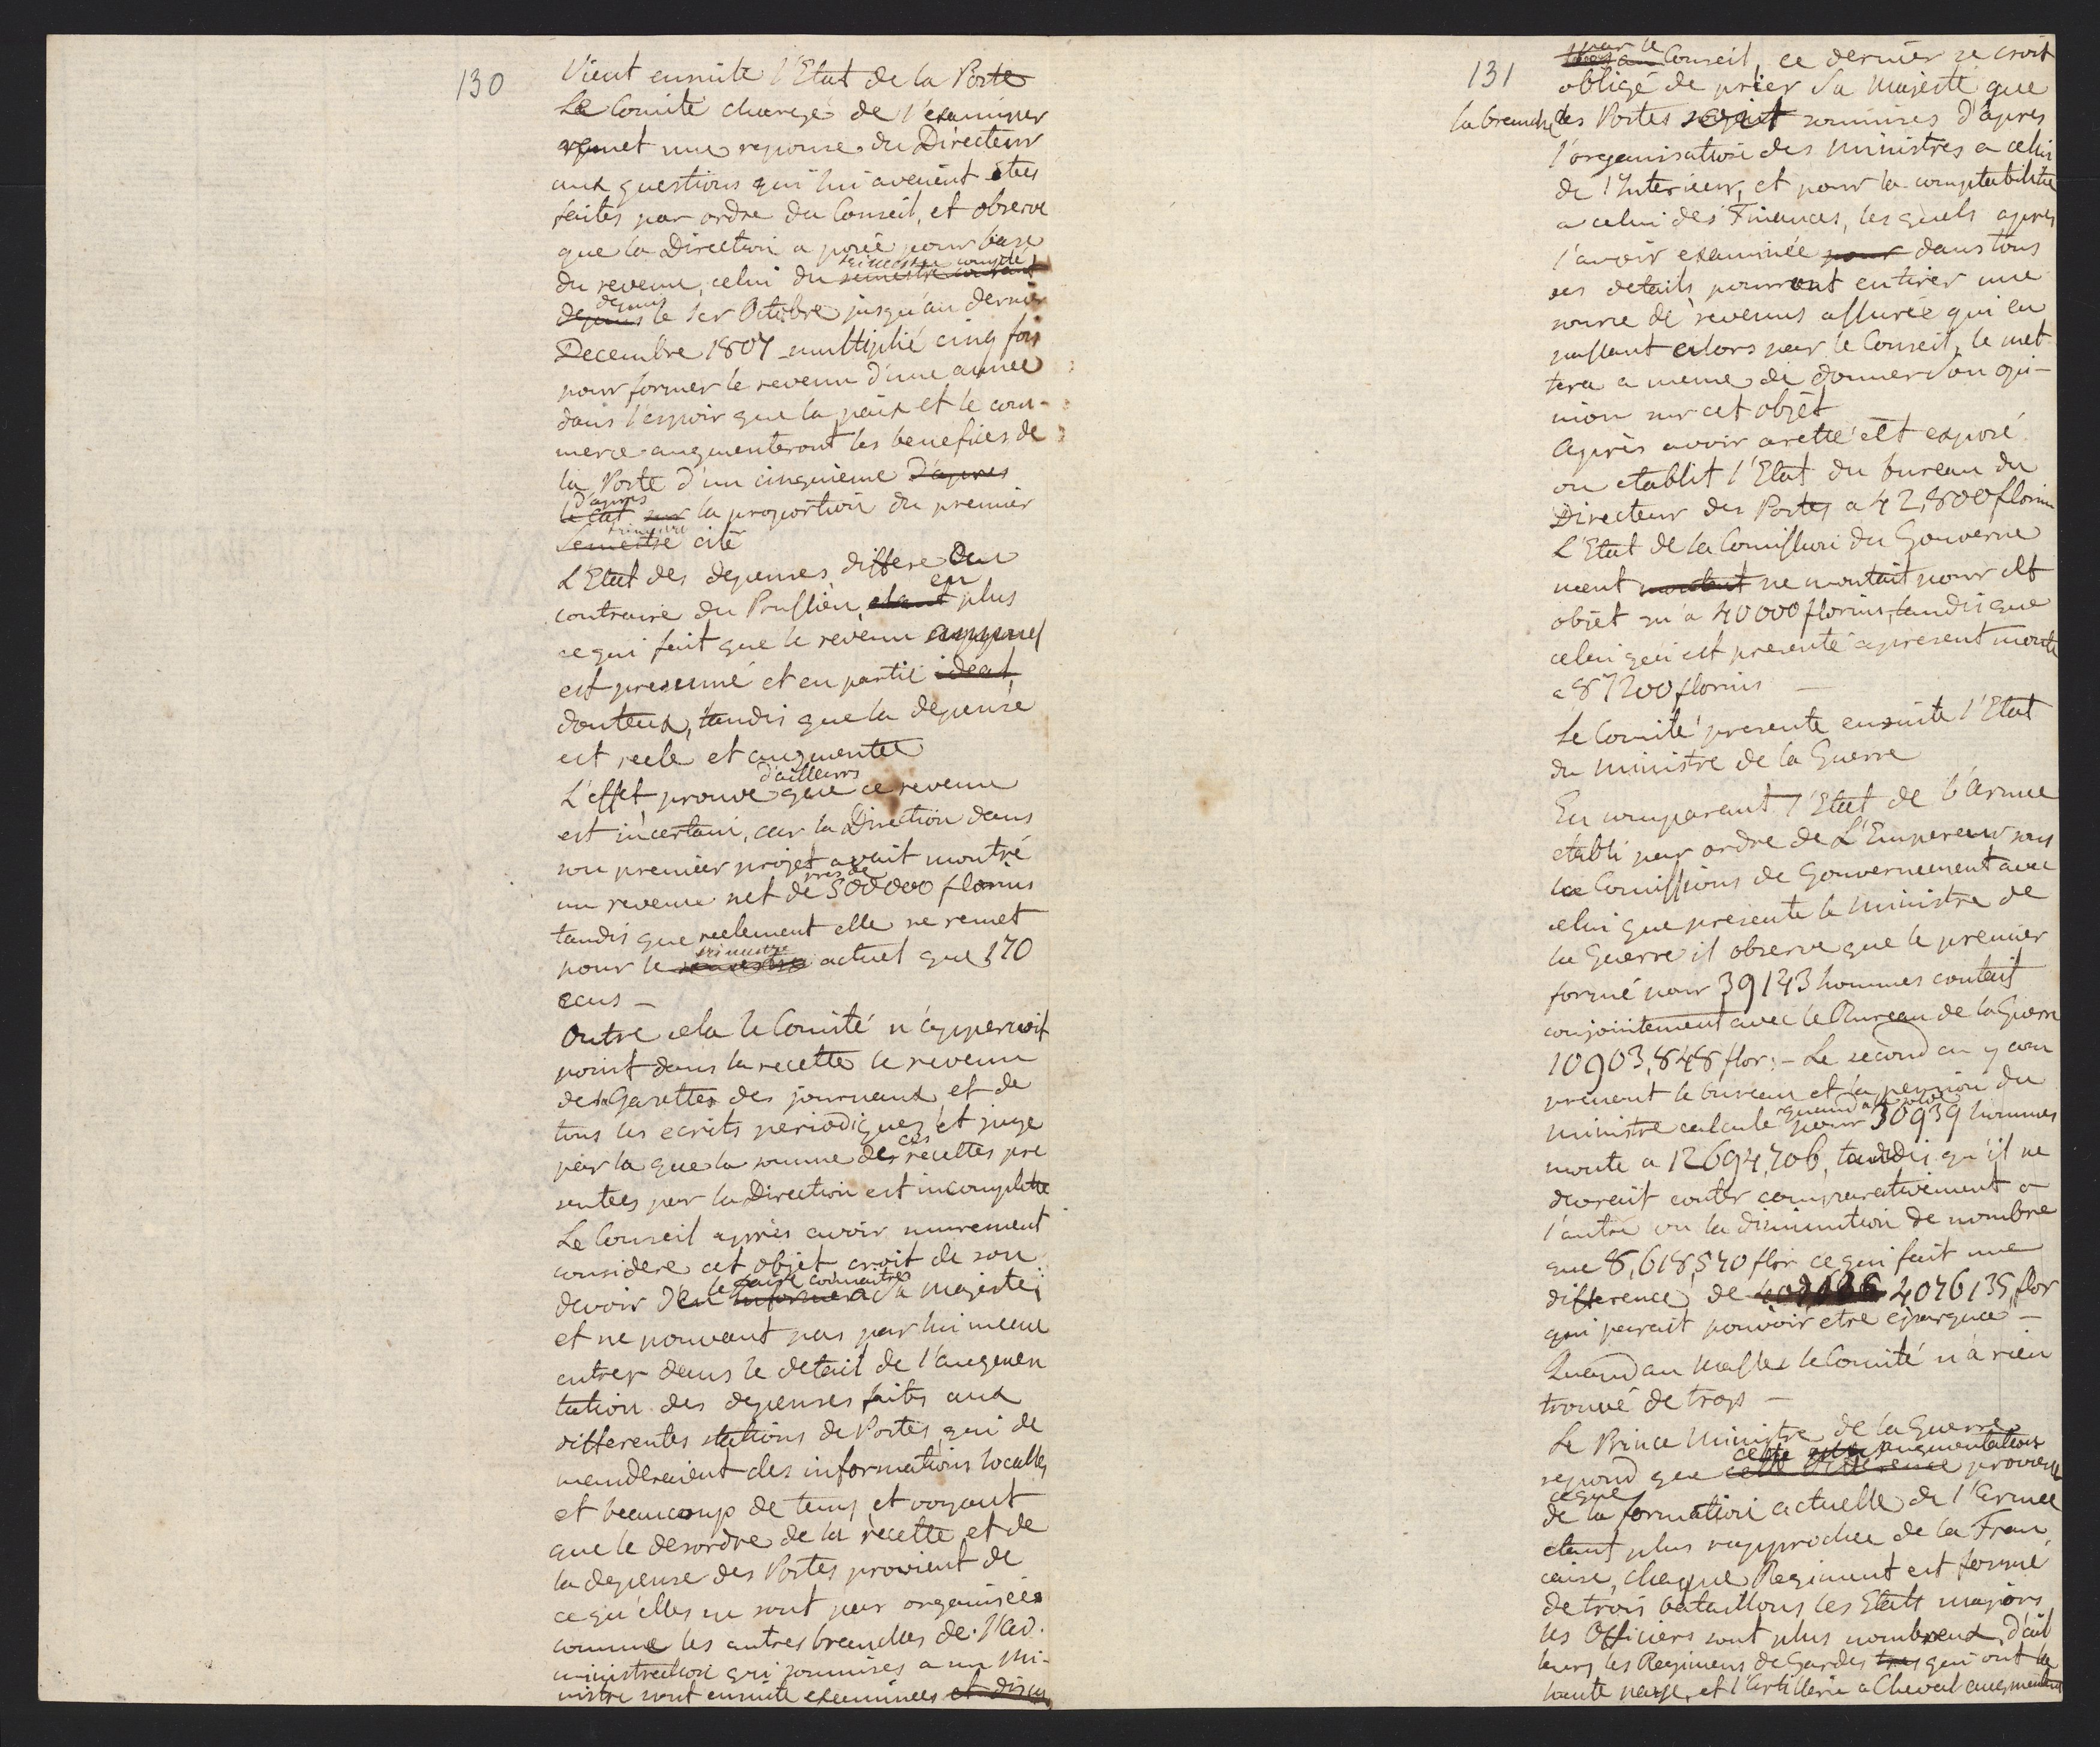 130
Vient ensuite l'Etat de la Poste
Le Comité chargé de l'examiner
remet une reponse du Directeur
aux questions qui lui avaient etées
faites par ordre du Conseil, et observe
que la Direction a posée pour base
du revenu, celui du semestre courant
depuis
depuis le 1er Octobre jusqu'au dernier
Decembre 1807 multiplié cinq fois
pour former le revenu d'une année
dans l'espoir que la paix et le com-
merce augmenteront les benefices de
la Poste d'un cinquieme d'apres
d'apres
le Cat sur la proportion du premier
trimestre
Semestre cité
L'Etat des depenses differe au
en
contraire du Prussien etant plus
ce qui fait que le revenu
est presumé et en partie ideal,
douteux, tandis que la depense
est reele et augmentée
d'ailleurs
L'effet prouve que ce revenu
est incertain, car la Direction dans
son premier projet avait montré
pres de
un revenu net de 500000 florins
tandis que reelement elle ne remet
trimestre
pour le semestre actuel que 170
ecus –
Outre cela le Comité n'apperçoit
point dans la recette le revenu
de la Gazette des journaux et de
tous les ecrits periodiques et juge
ces
par la que la somme des recettes pre
sentées par la Direction est incomplette
Le Conseil après avoir murement
consideré cet objet croit de son
le faire connaitre
devoir d'en informer a Sa Majesté;
et ne pouvant pas par lui meme
entrer dans le detail de l'augmen
tation des depenses faites aux
differentes stations de Postes, qui de
manderaient des informations locales
et beaucoup de tems, et voyant
que le desordre de la recette et de
la depense des Postes provient de
ce qu'elles ne sont pas organisées
comme les autres branches de l'ad.
ministration qui soumises a un Mi-
nistre sont ensuite examinées et discu
131
par le
Conseil, ce dernier se croit
obligé de prier Sa Majesté que
la branche des Postes soit soumises d'apres
l'organisation des ministres a celui
de l'Interieur, et pour la comptabilité
a celui des Finances, les quels apres
l'avoir examinée pour dans tous
ses details pourront en tirer une
source de revenus assurée qui en
passant alors par le Conseil, le met
tera a meme de donner Son opi-
nion sur cet objêt
Après avoir aretté cet exposé
on etablit l'Etat du bureau du
Directeur des Postes a 42,800 florins
L'Etat de la Comission du Gouverne
ment montait ne montait pour cet
objet qu'a 40000 florins, tandis que
celui qui est presenté apresent monte
a 87200 florins –
Le Comité presente ensuite l'Etat
du Ministre de la Guerre
En comparant l'Etat de l'Armée
etabli par ordre de L'Empereur sous
la Comissions de Gouvernement avec
celui que presente le Ministre de
la Guerre il observe que le premier
formé pour 39143 hommes coutait
conjointement avec le Bureau de la Guerre
10903,848 flor: – Le second en y com
prenant le bureau et la pension du
ministre calculé pour 30939 hommes
monte a 12694,706, tandis qu'il ne
devrait couter comparativement a
l'autre vu la diminution de nombre
que 8,618,570 flor ce qui fait une
difference de 4076135 flor
qui parait pouvoir etre epargnée –
Quand au Masses le Comité n'a rien
trouvé de trop –
Le Prince Ministre de la Guerre
cette augmentation
repond que cette difference provient
ce que
de la formation actuelle de l'Armee
etant plus rapprochée de la Fran
caise, chaque Regiment est formé
de trois bataillons, les Etats majors
les Officiers sont plus nombreux, d'ail
leurs les Regimens de Gardes qui ont la
haute paye, et l'Artillerie a Cheval augmentent